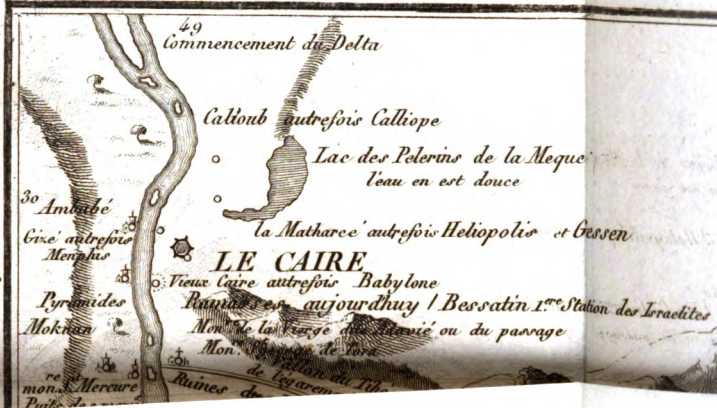 49
Commencement du Delta
Calioub autrefois Calliope
Lac des Pelerins de la Meque
l'eau en est douce
30
Ambabé
la Matharcé autrefois Heliopolis et Gessen
Gizé autrefois
Menphis
LE CAIRE
Vieux Caire autrefois Babylone
Pyramides
Ramasses aujourdhuy / Bessatin 1.ere Station des Israelites
Moknan
Mon. de la Vierge ou du passage
Mon. de Tora
de légarement
mon. S. Mercure
Ruines